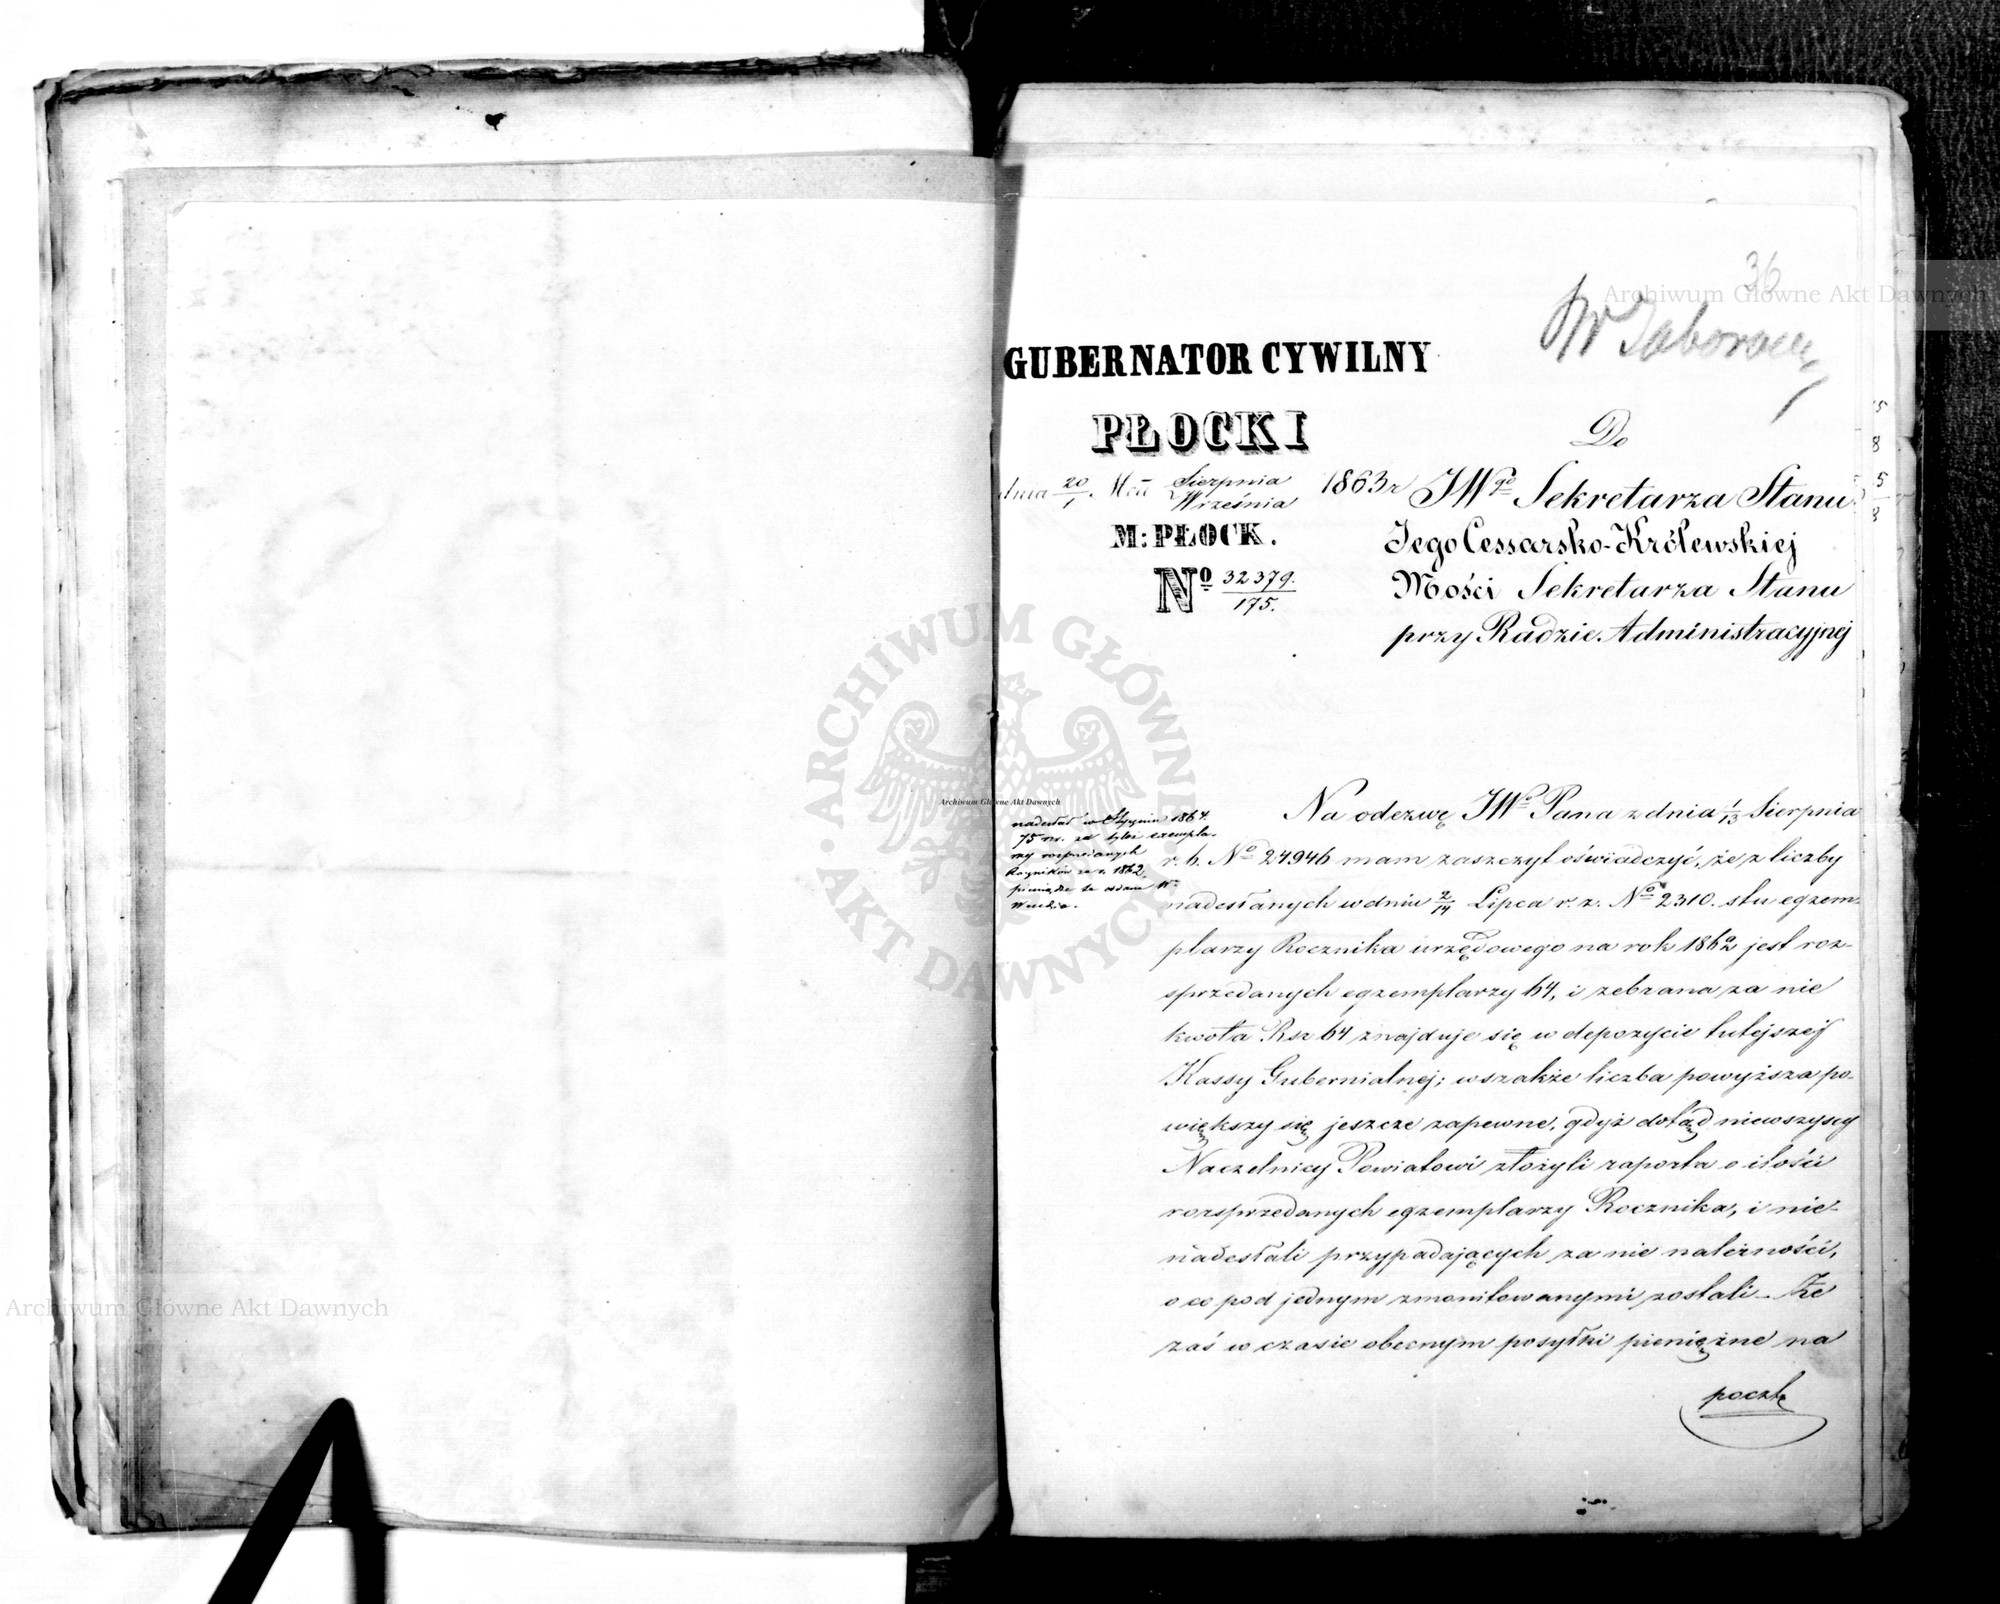 36
GUBERNATOR CYWILNY
PŁOCKI
dnia 20/1. Mca Sierpnia/Września 1863r
M: PŁOCK.
Nº 32379./175.
Do
JWgo Sekretarza Stanu
Jego Cessarsko-Królewskiej
Mości Sekretarza Stanu
przy Radzie Administracyjnej
Na odezwę JWo Pana z dnia 1/13 Sierpnia
r. b. No 24946 mam zaszczyt oświadczyć, że z liczby
nadesłanych w dniu 2/14 Lipca r. z. No 2310. stu egzem-
plarzy Rocznika urzędowego na rok 1862 jest roz-
sprzedanych egzemplarzy 64, i zebrana za nie
kwota Rsr 64 znajduje się w depozycie tutejszej
Kassy Gubernialnej; wszakże liczba powyższa po-
większy się jeszcze zapewne, gdyż dotąd niewszyscy
Naczelnicy Powiatowi złożyli raporta o ilości
rozsprzedanych egzemplarzy Rocznika, i nie-
nadesłali przypadających za nie należności,
o co pod jednym zmonitowanymi zostali_ Że
zaś w czasie obecnym posyłki pieniężne na
pocztę
nadesłał w Styczniu 1864.
75 rs. za tyleż exempla-
rzy rozprzedanych
Roczników za r. 1862,
pieniądze te oddane W
Archiwum Główne Akt Dawnych
Archiwum Główne Akt Dawnych
Archiwum Główne Akt Dawnych
ARCHIWUM GŁÓWNE AKT DAWNYCH